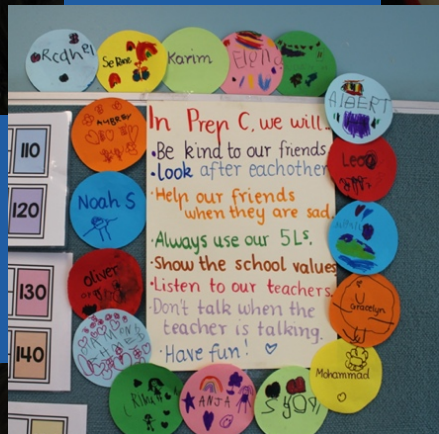 Rcdhel
Se Rine
Karim
Elena
AlBERT
AUBREY
Leo
Noah S
Oliver
Gracelyn
Mohammad
RiKU
ANJA
110
120
130
140
In Prep C, we will...
•Be kind to our friends
•look after eachother
•Help our friends
when they are sad.
•Always use our 5Ls.
•Show the school values
•Listen to our teachers.
•Don't talk when the
teacher is talking.
•Have fun!